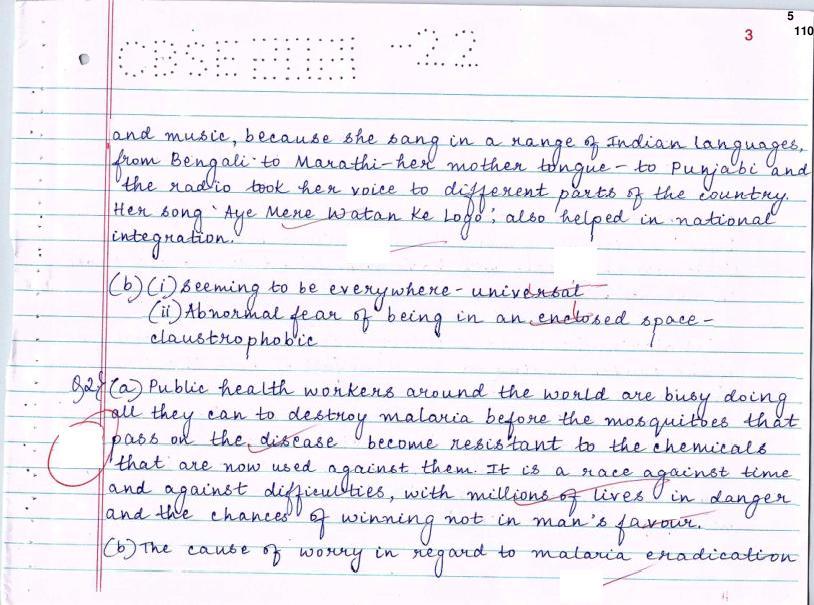 5
3
110
CBSE -22
and music, because she sang in a range of Indian languages,
from Bengali to Marathi-her mother tongue- to Punjabi and
the radio took her voice to different parts of the country.
Her song 'Aye Mere Watan Ke Logo', also helped in national
integration.
(b)(i) Seeming to be everywhere - universal
(ii) Abnormal fear of being in an enclosed space -
claustrophobic
Q2} (a) Public health workers around the world are busy doing
all they can to destroy malaria before the mosquitoes that
pass on the disease become resistant to the chemicals
that are now used against them. It is a race against time
and against difficulties, with millions of lives in danger
and the chances of winning not in man's favour.
(b) The cause of worry in regard to malaria eradication